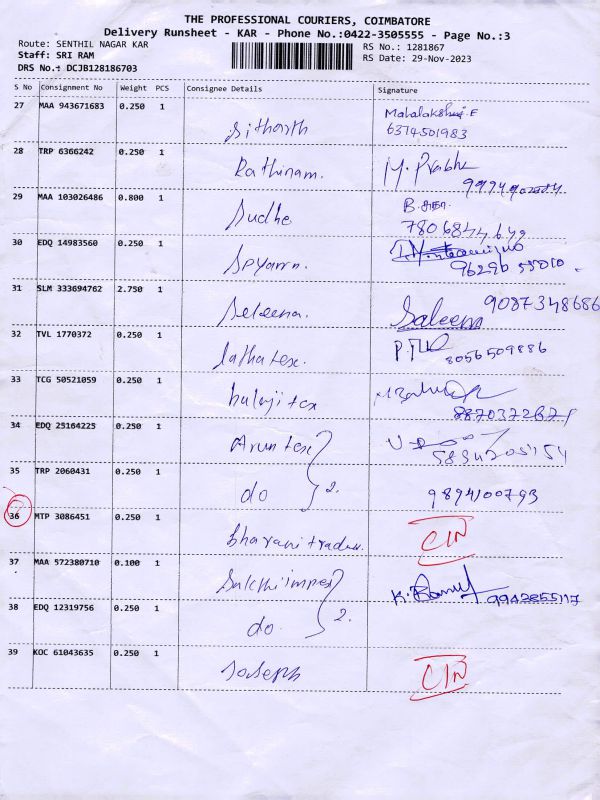 THE PROFESSIONAL COURIERS, COIMBATORE
Delivery Runsheet - KAR - Phone No.:0422-3505555 - Page No.:3
Route: SENTHIL NAGAR KAR
RS No.: 1281867
Staff: SRI RAM
RS Date: 29-Nov-2023
DRS No.: DCJB128186703
S No Consignment No Weight PCS Consignee Details Signature
27 MAA 943671683 0.250 1
Mahalakshmi.E
Sitharth 6374501983
28 TRP 6366242 0.250 1
Rathinam. M. Prabhu
29 MAA 103026486 0.800 1
Sudhe
30 EDQ 14983560 0.250 1
31 SLM 333694762 2.750 1
9087348686
Seleena. Saleem
32 TVL 1770372 0.250 1
lathatex. 8056509886
33 TCG 50521059 0.250 1
balaji tex
34 EDQ 25164225 0.250 1
Arun tex
35 TRP 2060431 0.250 1
do } 2. 9894100793
36 MTP 3086451 0.250 1
Bharani traders. CIN
37 MAA 572380710 0.100 1
Sakthi impex K. 9942855117
38 EDQ 12319756 0.250 1
do. } 2.
39 KOC 61043635 0.250 1
Joseph CIN